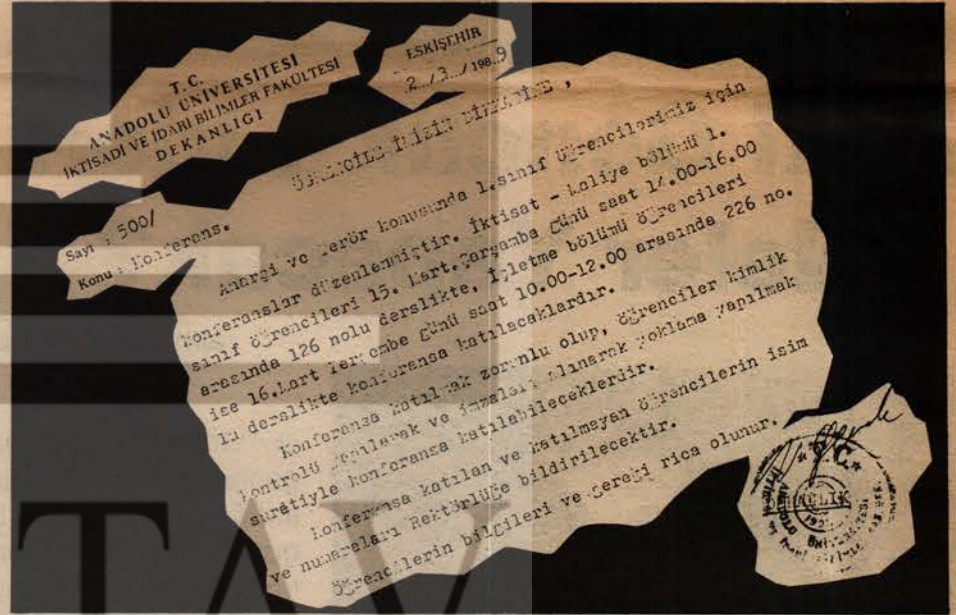 T.C.
ANADOLU ÜNİVERSİTESİ
İKTİSADİ VE İDARİ BİLİMLER FAKÜLTESİ
DEKANLIGI
ESKİŞEHİR
2../3.../198..9
Sayı : 500/
Konu : Konferans.
ÖĞRENCİLERİMİZİN DİKKATİNE ,
Anarşi ve terör konusunda 1.sınıf öğrencilerimiz için
konferanslar düzenlenmiştir. İktisat - Maliye bölümü 1.
sınıf öğrencileri 15. Mart.Çarşamba günü saat 14.00-16.00
arasında 126 nolu derslikte, İşletme bölümü öğrencileri
ise 16.Mart Perşembe günü saat 10.00-12.00 arasında 226 no.
lu derslikte konferansa katılacaklardır.
Konferansa katılmak zorunlu olup, öğrenciler kimlik
kontrolü yapılarak ve imzaları alınarak yoklama yapılmak
suretiyle konferansa katılabileceklerdir.
Konferansa katılan ve katılmayan öğrencilerin isim
ve numaraları Rektörlüğe bildirilecektir.
Öğrencilerin bilgileri ve gereği rica olunur.
T.C.
TAV